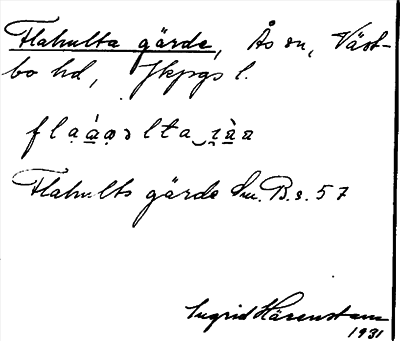 Flahulta gärde, Ås sn, Väst-
bo hd, Jkpgs l.
Flahults gärde Sm. B. s. 57
Ingrid Härenstam
1931